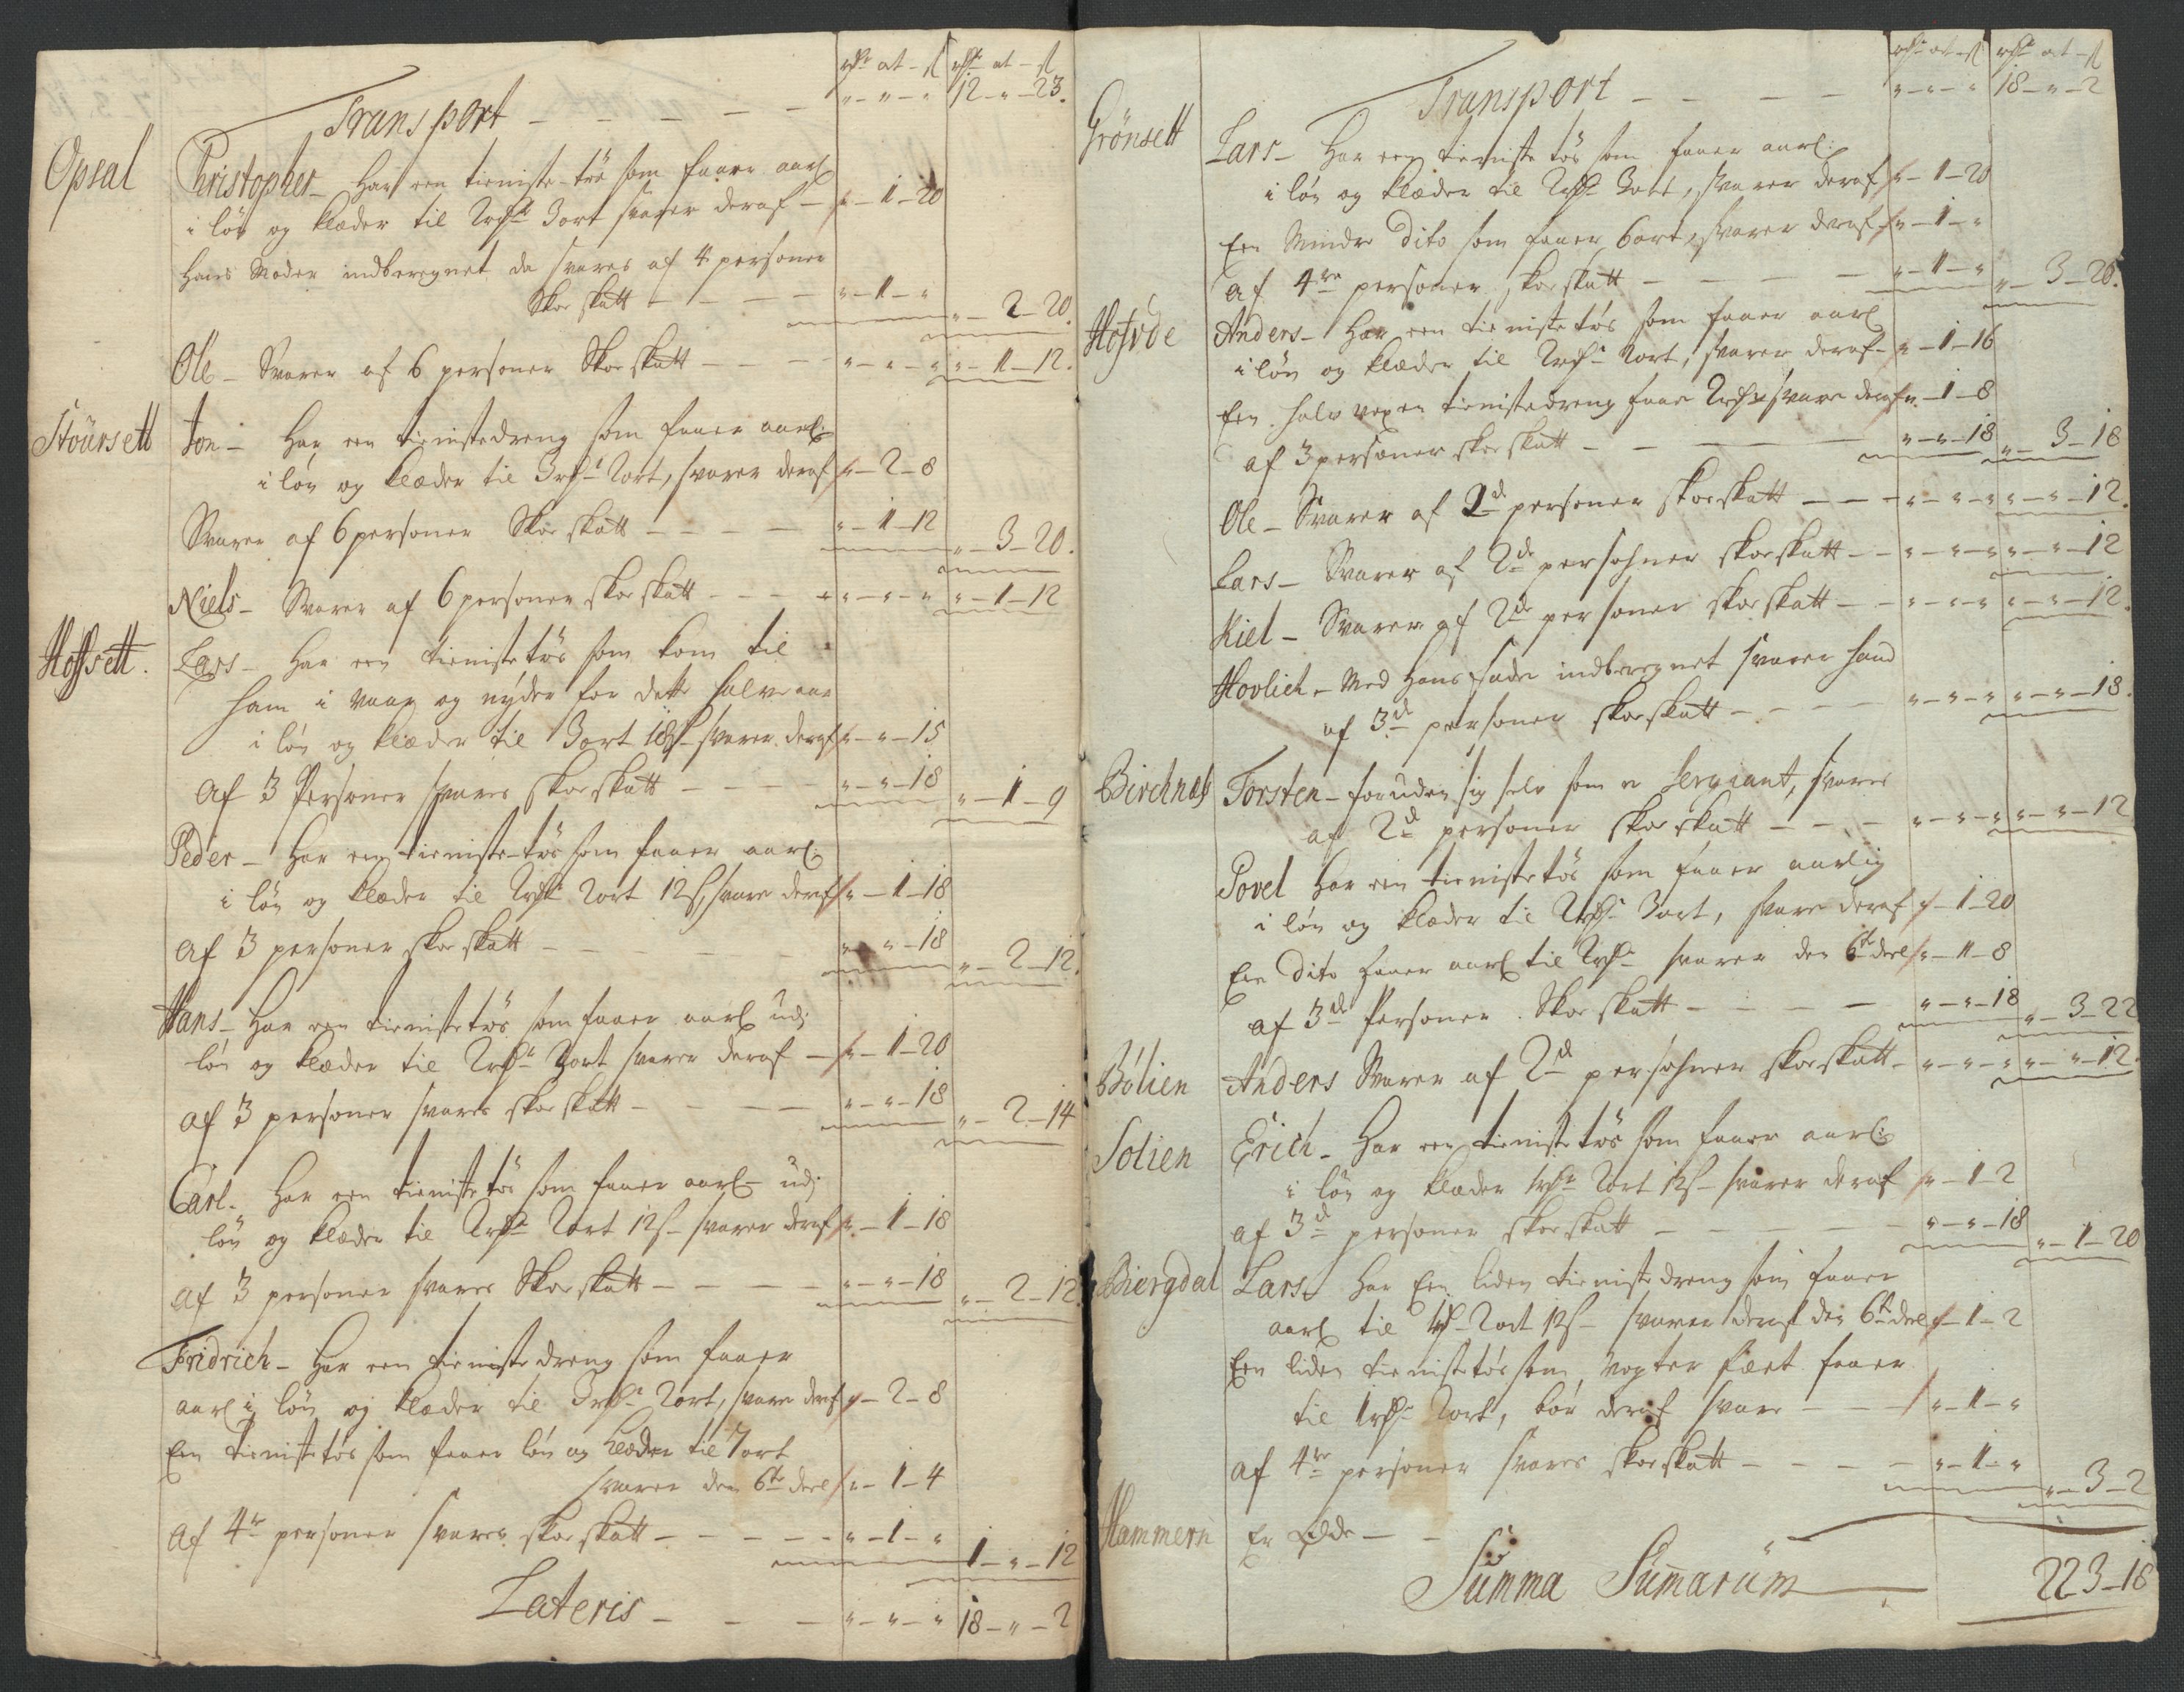 rdr ort ß rdr ort ß
Transport - - - - "-"-" 12-"-23.
Opsal Christopher- Har een tieniste-tös som faaer aarl:
i løn og klæder til 2rdr 3ort svarer deraf - "-1-20
Hans Moder indberegnet da svares af 4 personer
Skoe skatt - - - - "-1-" "-2-20.
Ole- Svarer af 6 personer Skoe skatt - - - "-"-" "-1-12.
Stoürsett Jon- Har een tienistedreng som faaer aarl:
i løn og klæder til 3rdr 2ort, svarer deraf "-2-8
Svarer af 6 personer Skoe skatt - - - "-1-12 "-3-20.
Niels- Svarer af 6 personer skoe skatt - - - "-"-" "-1-12
Hoffsett. Lars- Har een tienistetös som kom til
ham i vaar og nyder for dette halve aar
i løn og klæder til 3ort 18ß svarer deraf "-"-15
Af 3 Personer svares skoe skatt - - - "-"-18 "-1-9
Peder- Har een tieniste-tös som faaer aarl:
i løn og klæder til 2rdr 2ort 12ß, svarer deraf "-1-18
Af 3 personer skoe skatt - - - - "-"-18 "-2-12.
Hans- Har een tienistetös som faaer aarl udj
løn og klæder til 2rdr 3ort svarer deraf - "-1-20
Af 3 personer svares skoe skatt - - - - "-"-18 "-2-14
Carl. Har een tienistetös som faaer aarl- udj
løn og klæder til 2rdr 2ort 12ß- svarer deraf "-1-18
Af 3 personer svares Skoe skatt - - - "-"-18 "-2-12.
Fridrich- Har een tienistedreng som faaer
aarl i løn og klæder til 3rdr 2ort, svarer deraf "-2-8
Een tienistetös som faaer løn og klæder til 7ort
svarer den 6te deel "-1-4
Af 4re personer svares skoe skatt - - - - "-1-" 1-"-12
Lateris - - - "-"-" 18-"-2
rdr ort ß rdr ort ß
Transport - - - - "-"-" 18-"-2
Grönsett Lars- Har een tieniste tös som faaer aarl:
i løn og klæder til 2rdr 3ort, svarer deraf "-1-20
Een Mindre Dito som faaer 6ort, svarer deraf "-1-"
Af 4re personer skoe skatt - - - - "-1-" "-3-20.
Hofvde Anders- Har een tienistetös som faaer aarl
i løn og klæder til 2rdr 2ort, svarer deraf- "-1-16
Een halv voxen tienistedreng faaer 2rdr svarer deraf "-1-8
af 3 personer skoe skatt - - - "-"-18 "-3-18
Ole- Svarer af 2de personer skoe skatt - - - "-"-" "-"-12.
Lars- Svarer af 2de persohner skoe skatt - - "-"-" "-"-12
Kiel- Svarer af 2de personer skoe skatt - - "-"-" "-"-12.
Hovlich- Med Hans fader indberegnet svarer hand
af 3de personer skoe skatt - - - - "-"-" "-"-18.
Birchnæs Torsten- foruden sig selv som er Sergiant, svares
af 2de personer skoe skatt - - - "-"-" "-"-12
Povel Har een tienistetös som faaer aarlig
i løn og klæder til 2rdr 3ort, svarer deraf "-1-20
Een Dito faaer aarl til 2rdr svarer den 6te deel "-1-8
af 3de Personer Skoe skatt - - - - "-"-18 "-3-22
Bölien Anders Svarer af 2de persohner skoe skatt- "-"-" "-"-12.
Solien Erich- Har een tieniste tös som faaer aarl:
i løn og klæder 1rdr 2ort 12ß- svarer deraf "-1-2
af 3de personer skoe skatt - - - - - "-"-18 "-1-20
Biergdal Lars- Har Een liden tienistedreng som faaer
aarl til 1rdr 2ort 12ß- svarer deraf den 6te deel "-1-2
Een liden tienistetös som vogter fæet faaer
til 1rdr 2ort, bör deraf svare - - "-1-"
af 4re personer svares skoe skatt - - - - "-1-" "-3-2
Hammern Er Øde - -
Summa Summarüm 22-3-18